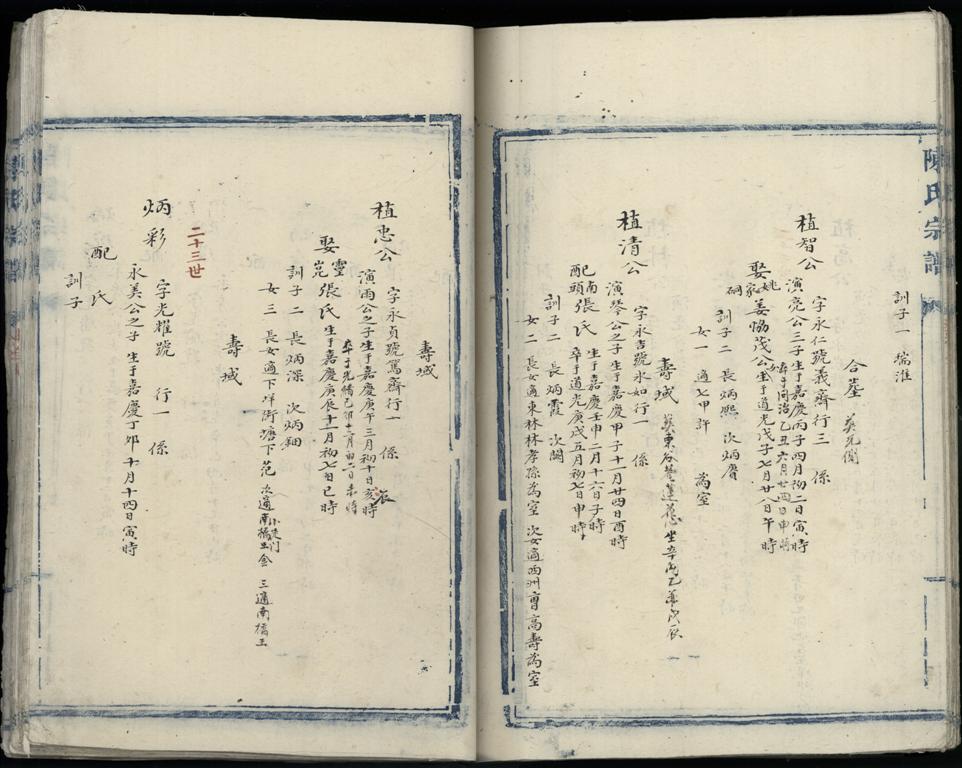 陳氏宗譜
訓子一 瑞淮
合墓 葬兄側
植智公
字永仁號義齋行三 係
演亮公三子生于嘉慶丙子四月初二日寅時
卒于同治乙丑六月廿四日申時
娶姚家碙姜協茂公女生于道光戊子七月廿八日午時
訓子二 長炳熙 次炳膺
女一 適七甲許 為室
壽域 葬東谷巷蓮花心坐辛向乙兼戌辰
植清公
字永吉號氷如行一 係
演琴公之子生于嘉慶甲子十一月廿四日酉時
配南頭張氏 生于嘉慶壬申二月十六日子時
卒于道光庚戌五月初七日申時
訓子二 長炳霞 次闢
女二 長女適東林林孝孫為室 次女適西洲曹高壽為室
壽域
植忠公
字永貞號篤齋行一 係
演雨公之子生于嘉慶庚午三月初十日亥時
辰
娶靈崑張氏 生于嘉慶庚辰十一月初七日巳時
卒于光緒己卯十二月廿二日未時
訓子二 長炳深 次炳鈿
女三 長女適下垟街塘下范 次適南橋小徒門王金 三適南橋王
壽域
二十三世
炳彩
字光耀號 行一 係
永美公之子 生于嘉慶丁卯十月十四日寅時
配 氏
訓子